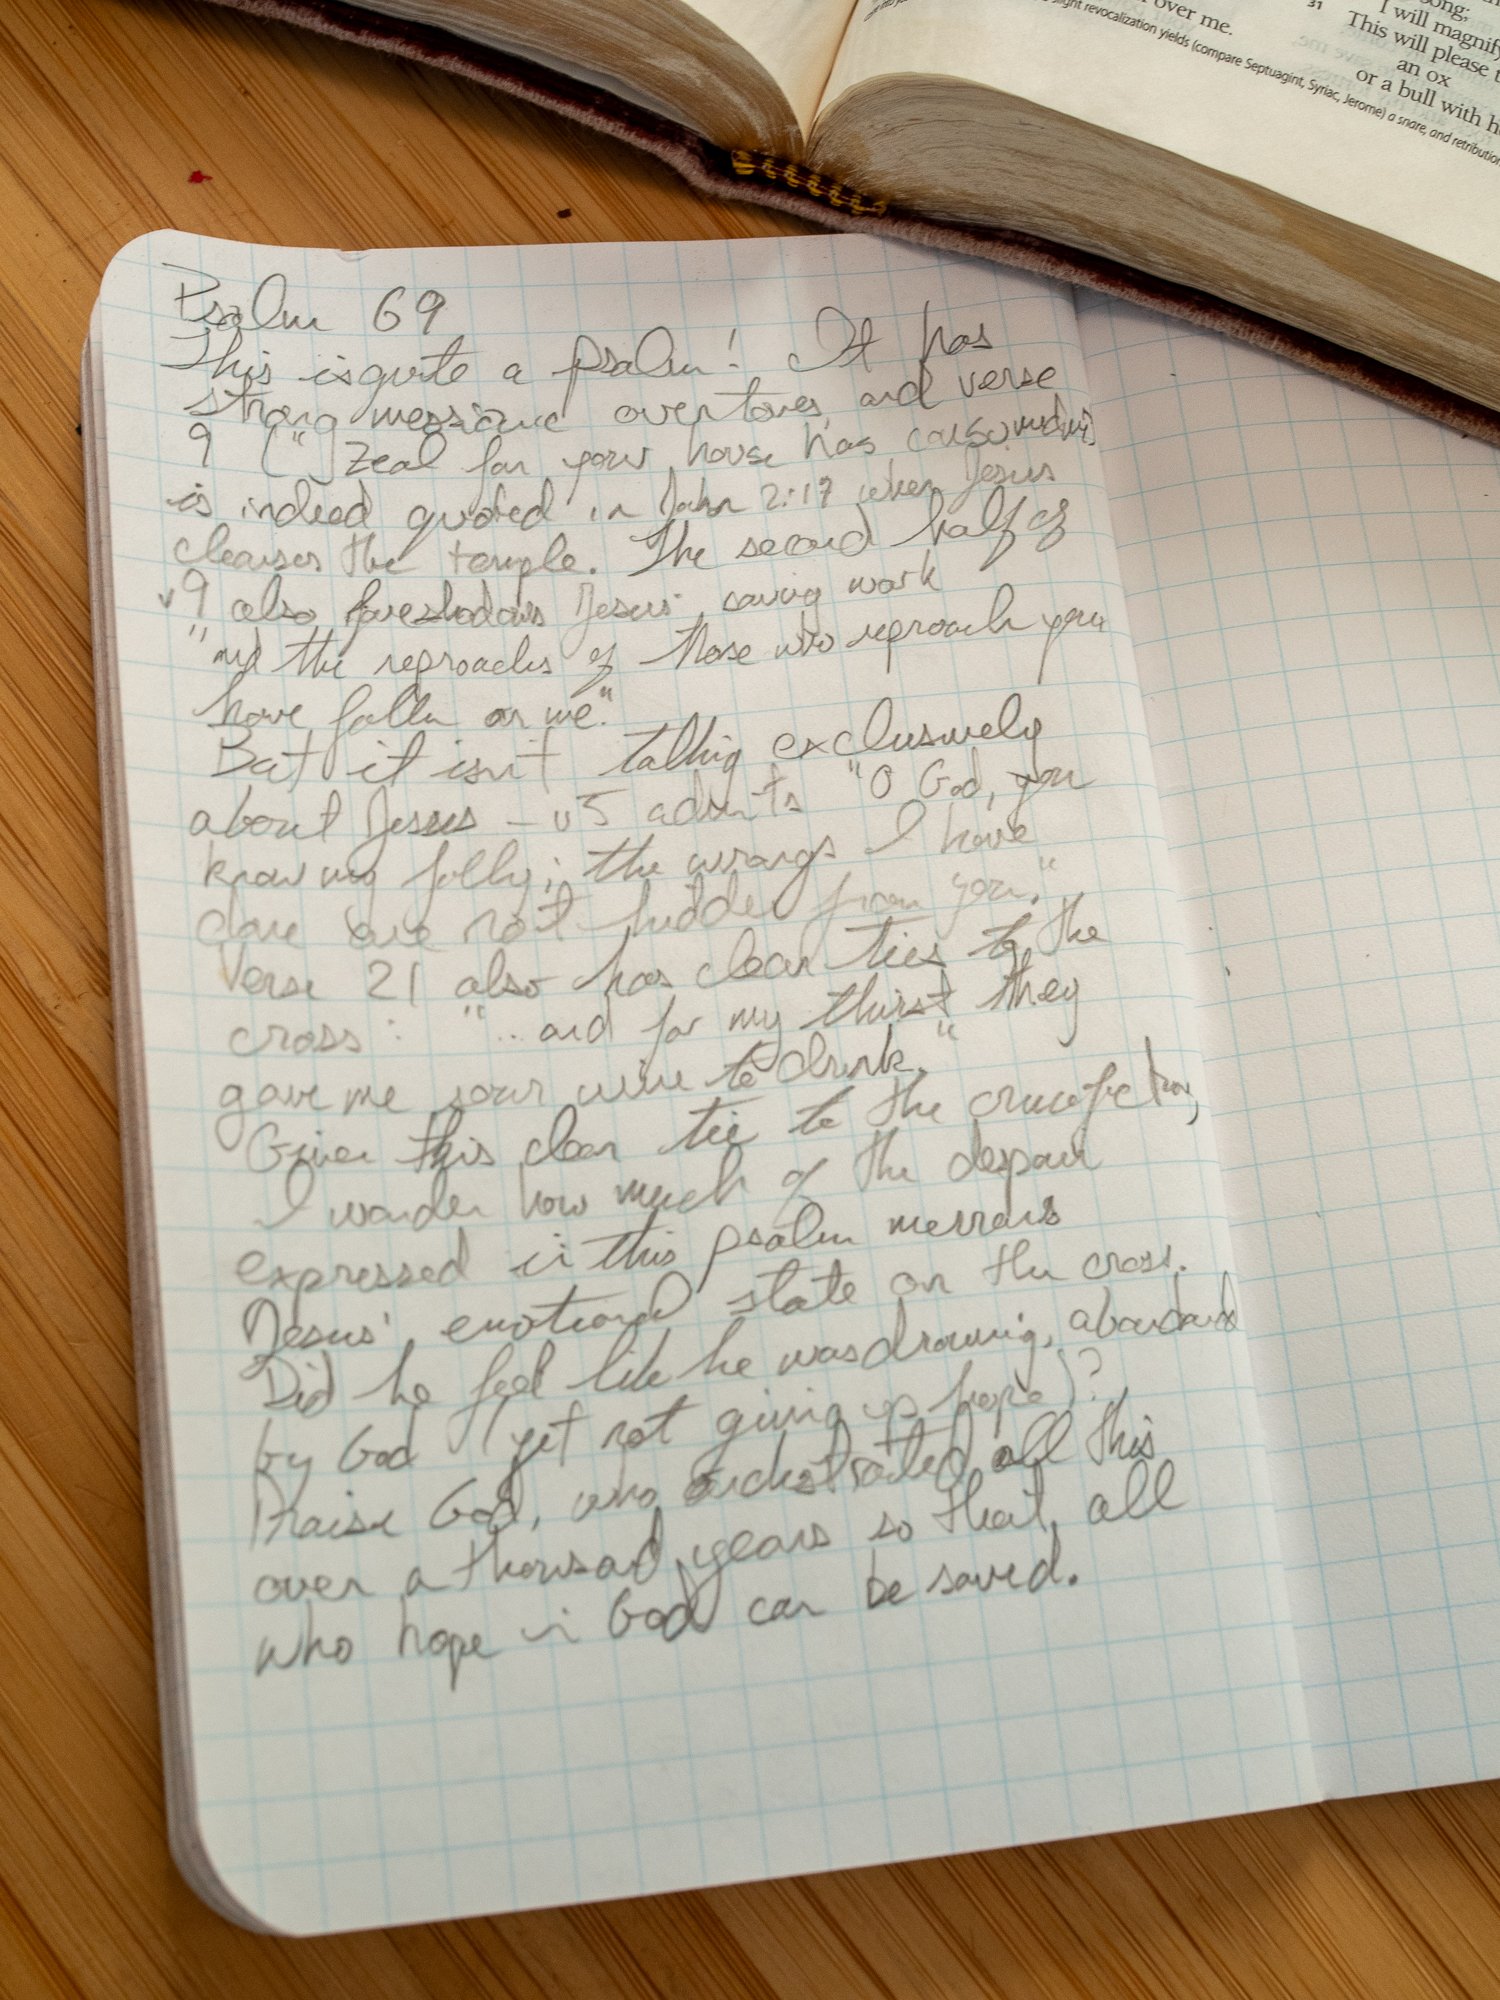 over me.
slight revocalization yields (compare Septuagint, Syriac, Jerome) a snare, and retribution
song;
I will magnify
31 This will please t
an ox
or a bull with h
Psalm 69
This is quite a psalm! It has
strong messianic overtones, and verse
9 ("Zeal for your house has consumed me")
is indeed quoted in John 2:17 when Jesus
cleanses the temple. The second half of
v9 also foreshadows Jesus' saving work
"and the reproaches of those who reproach you
have fallen on me."
But it isn't talking exclusively
about Jesus - v5 admits "O God, you
know my folly; the wrongs I have
done are not hidden from you."
Verse 21 also has clear ties to the
cross: "...and for my thirst they
gave me sour wine to drink."
Given this clear tie to the crucifection,
I wonder how much of the despair
expressed in this psalm merrors
Jesus' emotional state on the cross.
Did he feel like he was drowning, abandoned
by God (yet not giving up hope)?
Praise God, who orchestrated all this
over a thousand years so that all
who hope in God can be saved.